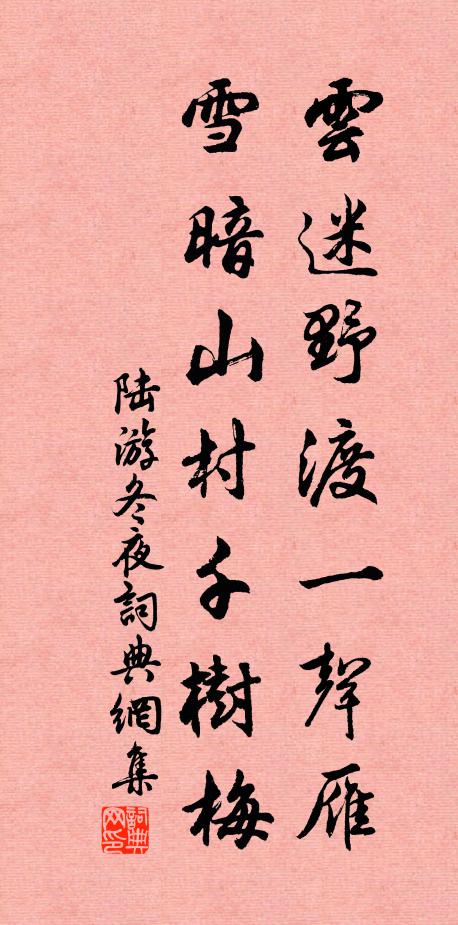 雲迷野渡一聲雁
雪暗山村千樹梅
陸游冬夜詞典網集
詞典網印